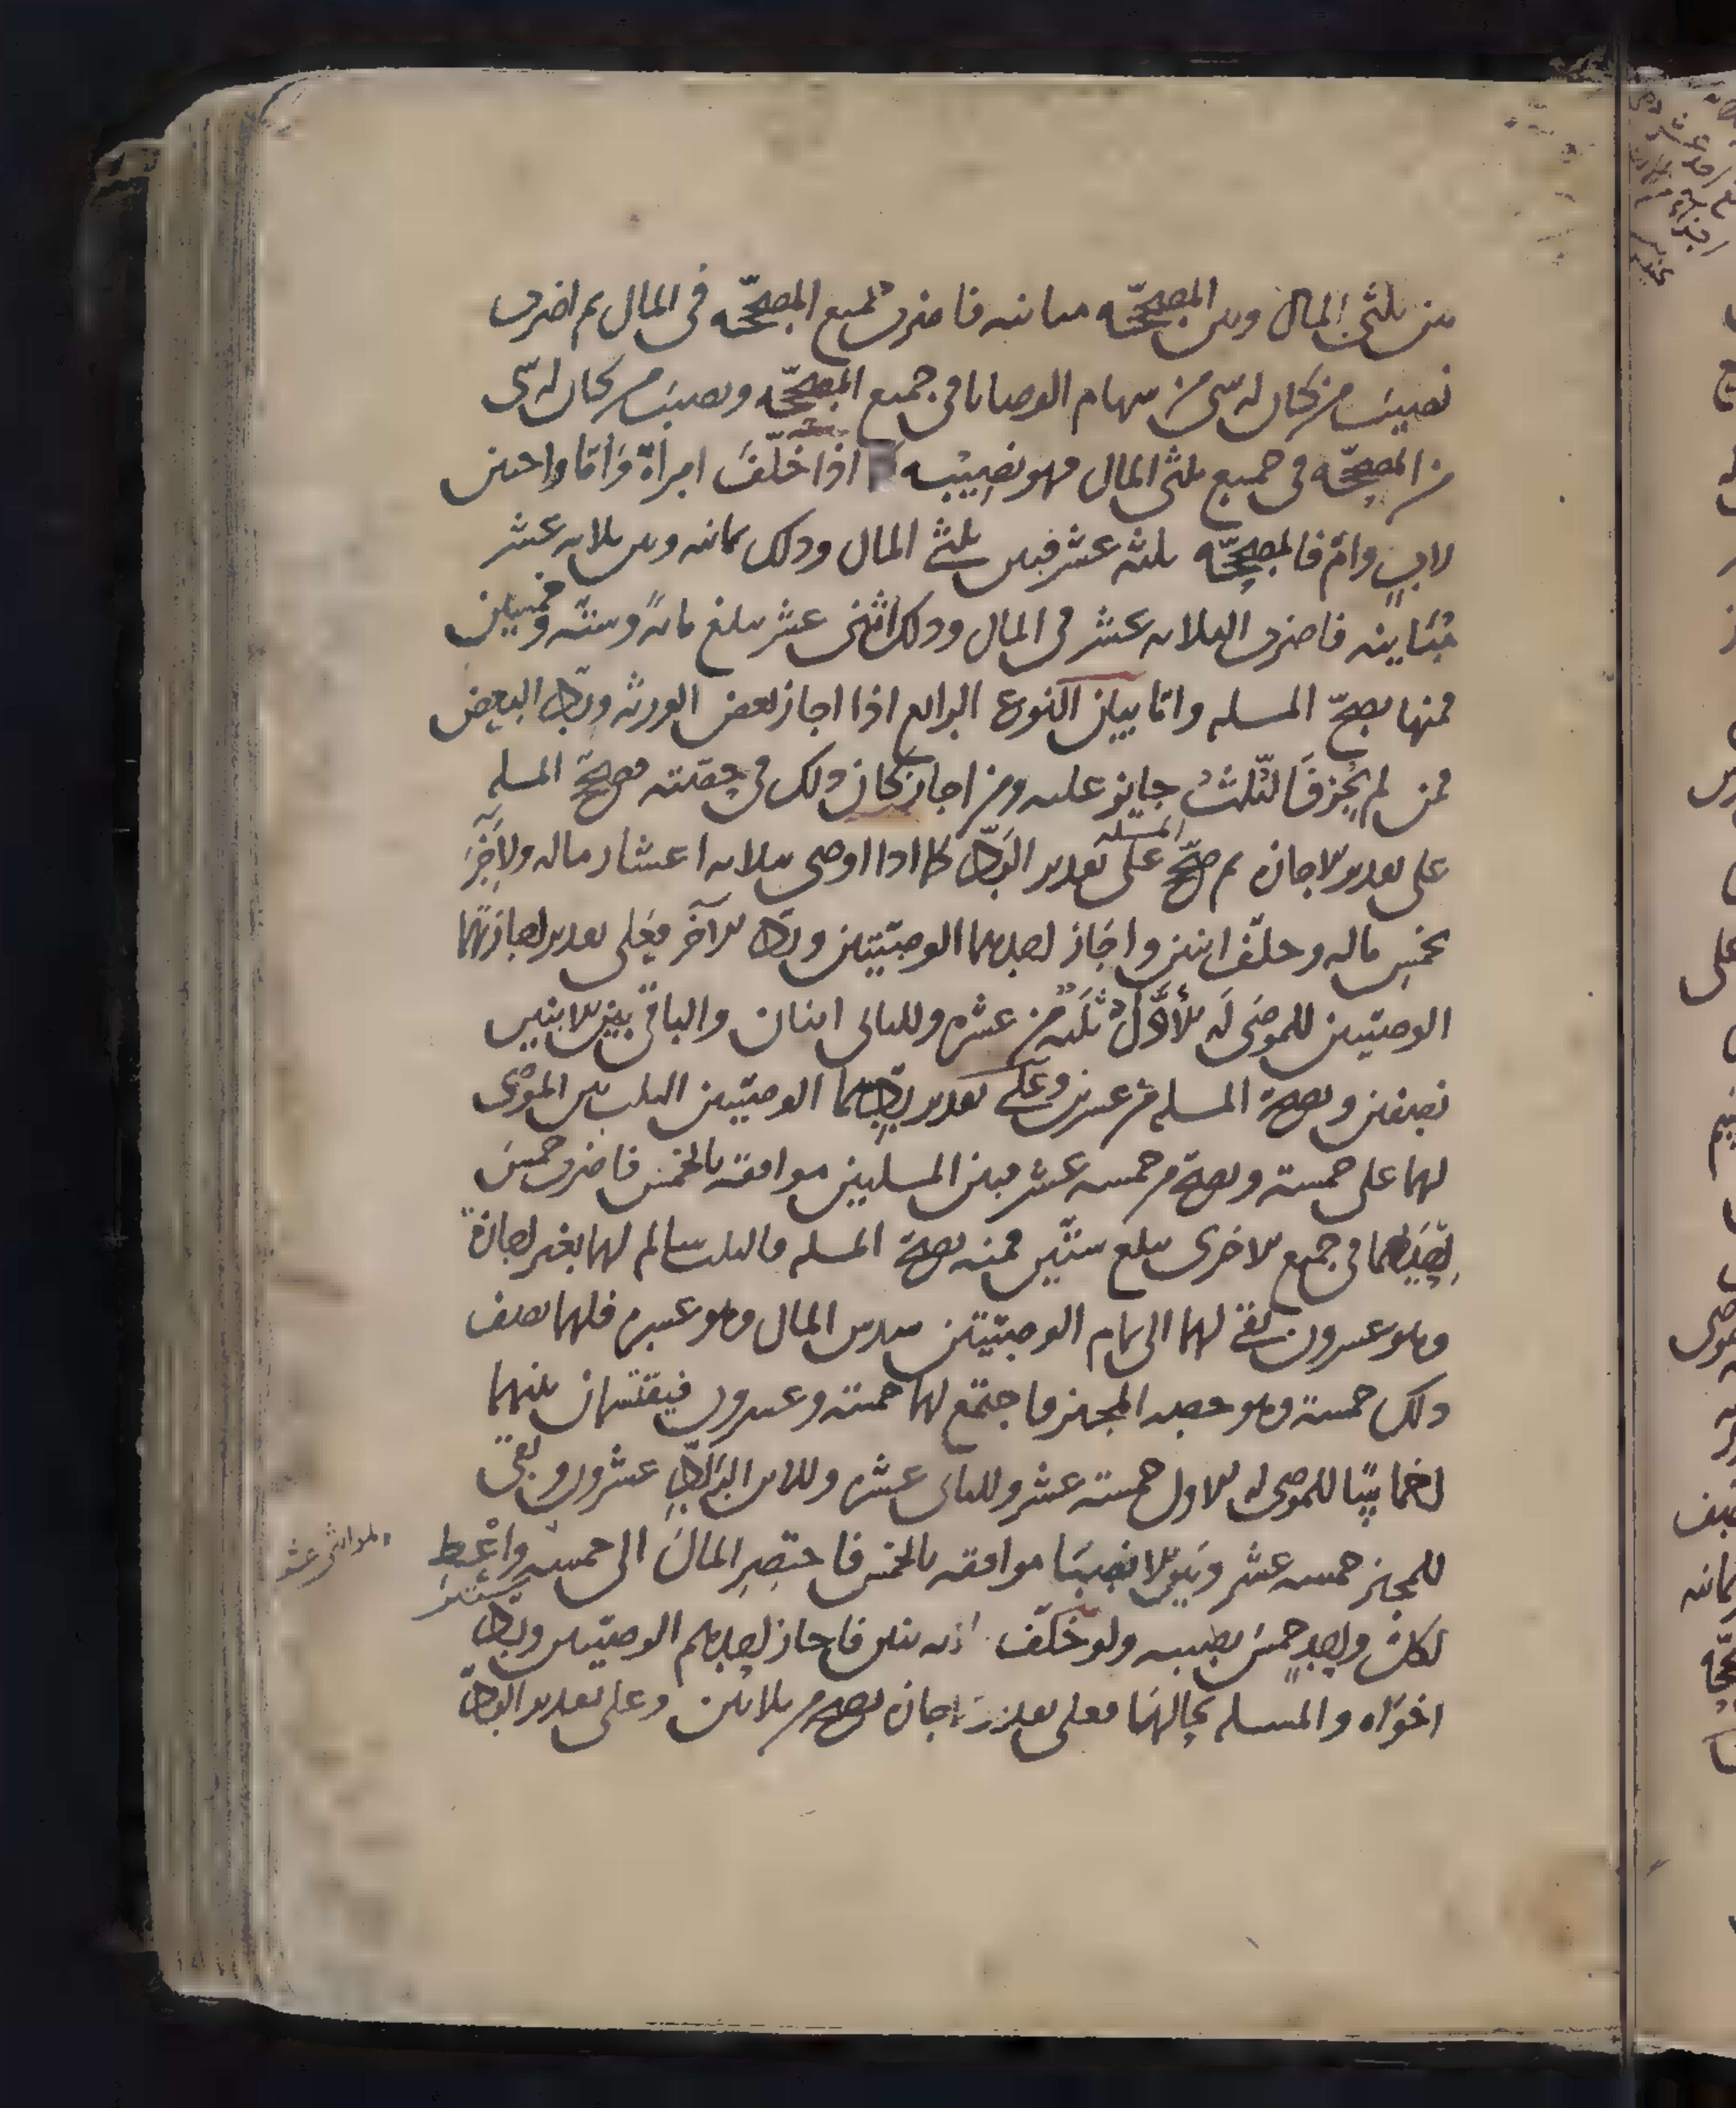 بين ثلثي المال وبين المصحّه مباينه فاضرب جميع المصحّه في المال ثم اضرب
نصيب من كان له شي من سهام الوصايا في جميع المصحّه ونصيب من كان له شي
من المصحّه في جميع ثلثي المال فهو نصيبه اذا خلّف امراة وامّا واختين
لاب وام فالمصحّه ثلثه عشر فبين ثلثي المال وذلك ثمانيه وبين ثلاثه عشر
مُباينه فاضرب الثلاثه عشر في المال وذلك اثنى عشر يبلغ مائةً وستّه وخمسين
فمنها يصحّ المسله وامّا بيان النوع الرابع اذا اجاز بعض الورثه وردّ البعض
فمن لم يُجِز فالثّلثُ جايز عليه ومن اجاز كان ذلك في حصّته فصحّح المسله
على تقدير الاجازه ثم صحّح المسله على تقدير الردّ كما اذا اوصى بثلاثه اعشار ماله ولآخَرَ
بخمسِ ماله وخلّف ابنين واجاز احدهما الوصيّتين وردّ الآخر فعلى تقدير اجازتهما
الوصيّتين للموصَى له الأوّل ثلثه من عشره وللثاني اثنان والباقي بين الابنين
نصفين ويصحّ المسله من عشرين وعلى تقدير ردّهما الوصيّتين الثلث بين الموصى
لهما على خمسة ويصحّ من خمسه عشر فبين المسلتين موافقه بالخمس فاضرب خمسَ
اِحديهما في جميع الاخرى يبلغ ستّين فمنه يصحّ المسله فالثلث سالم لهما بغير اجازة
وهو عشرون بقي لهما الى تمام الوصيّتين سدس المال وهو عشره فلهما نصف
ذلك خمسة وهو حصه المجيز فاجتمع لهما خمسة وعشرون فيقتسمان بينهما
اخماسًا للموصى له الاول خمسة عشر وللثاني عشره وللابن الرادّ عشرون وبقي
للمجيز خمسه عشر وبين الانصبَا موافقه بالخمس فاختصِر المالَ الى خمسه واعْطِ
وهو اثنى عشر
لكل واحدٍ خمسَ نصيبه ولو خلّف ثلثه بنين فاجاز احدهم الوصيّتين وردّ
اخواه والمسله بحالهَا فعلى تقدير اجازه يصحّ من ثلاثين وعلى تقدير الردّ